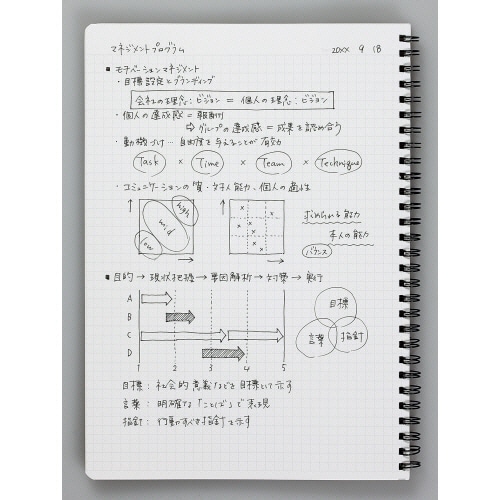 マネジメントプログラム 20XX 9 18
■ モチベーションマネジメント
・目標設定とブランディング
会社の理念:ビジョン = 個人の理念:ビジョン
・個人の達成感 = 報酬制
⇨ グループの達成感 = 成果を認め合う
・動機づけ… 自由度を与えることが有効
Task × Time × Team × Technique
・コミュニケーションの質・対人能力、個人の適性
high
mid
low
求められる能力
本人の能力
バランス
■ 目的 → 現状把握 → 要因解析 → 対策 → 実行
A
B
C
D
1 2 3 4 5
目標
言葉 指針
目標:社会的意義などを目標として示す
言葉:明確な「ことば」で表現
指針:行動すべき指針を示す